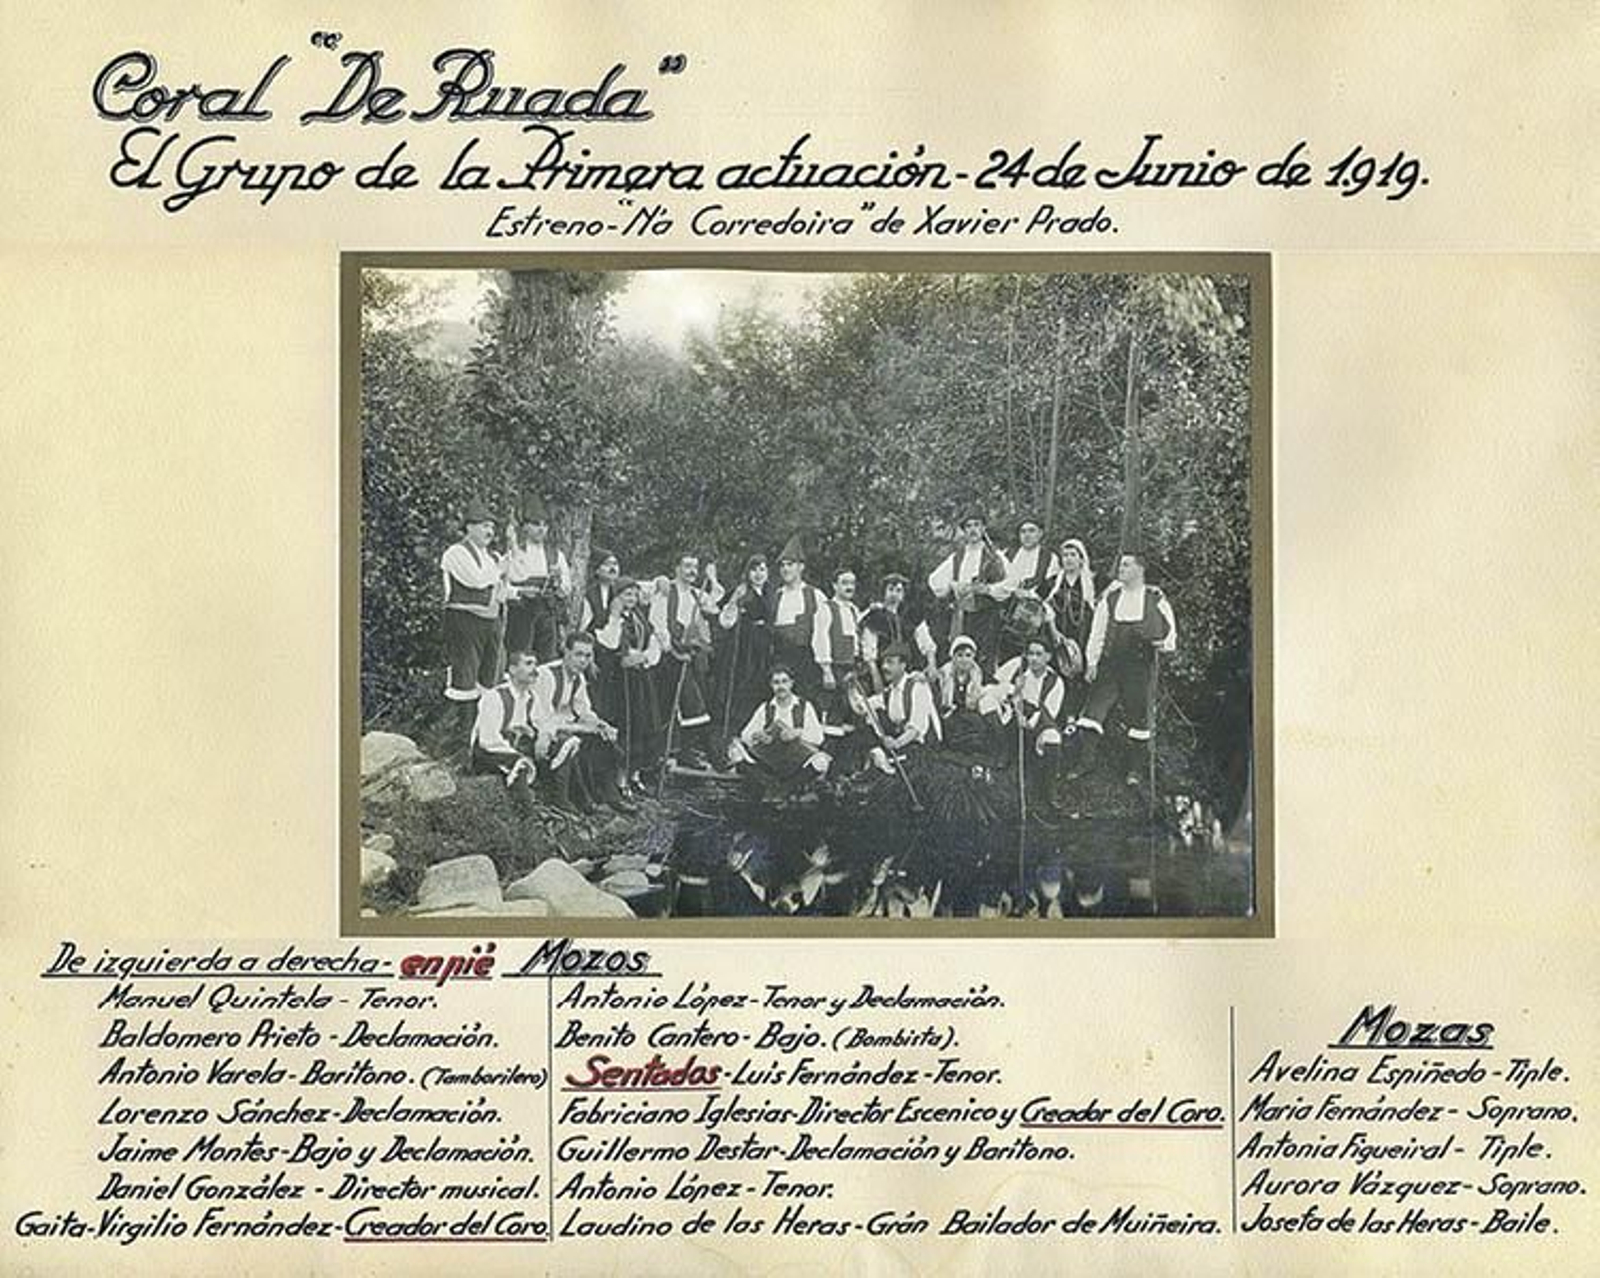 Coral "De Ruada"
El Grupo de la Primera actuación-24 de Junio de 1.919.
Estreno-"N'a Corredoira" de Xavier Prado.
De izquierda a derecha- en pié Mozos
Manuel Quintela - Tenor.
Baldomero Prieto - Declamación.
Antonio Varela - Barítono. (Tamborilero)
Lorenzo Sánchez - Declamación.
Jaime Montes - Bajo y Declamación.
Daniel González - Director musical.
Gaita - Virgilio Fernández - Creador del Coro.
Antonio López - Tenor y Declamación.
Benito Cantero - Bajo. (Bombista).
Sentados - Luis Fernández - Tenor.
Fabriciano Iglesias - Director Escenico y Creador del Coro.
Guillermo Destar - Declamación y Barítono.
Antonio López - Tenor.
Laudino de las Heras - Grán Bailador de Muiñeira.
Mozas
Avelina Espiñedo - Tiple.
Maria Fernández - Soprano.
Antonia Figueiral - Tiple.
Aurora Vázquez - Soprano.
Josefa de las Heras - Baile.